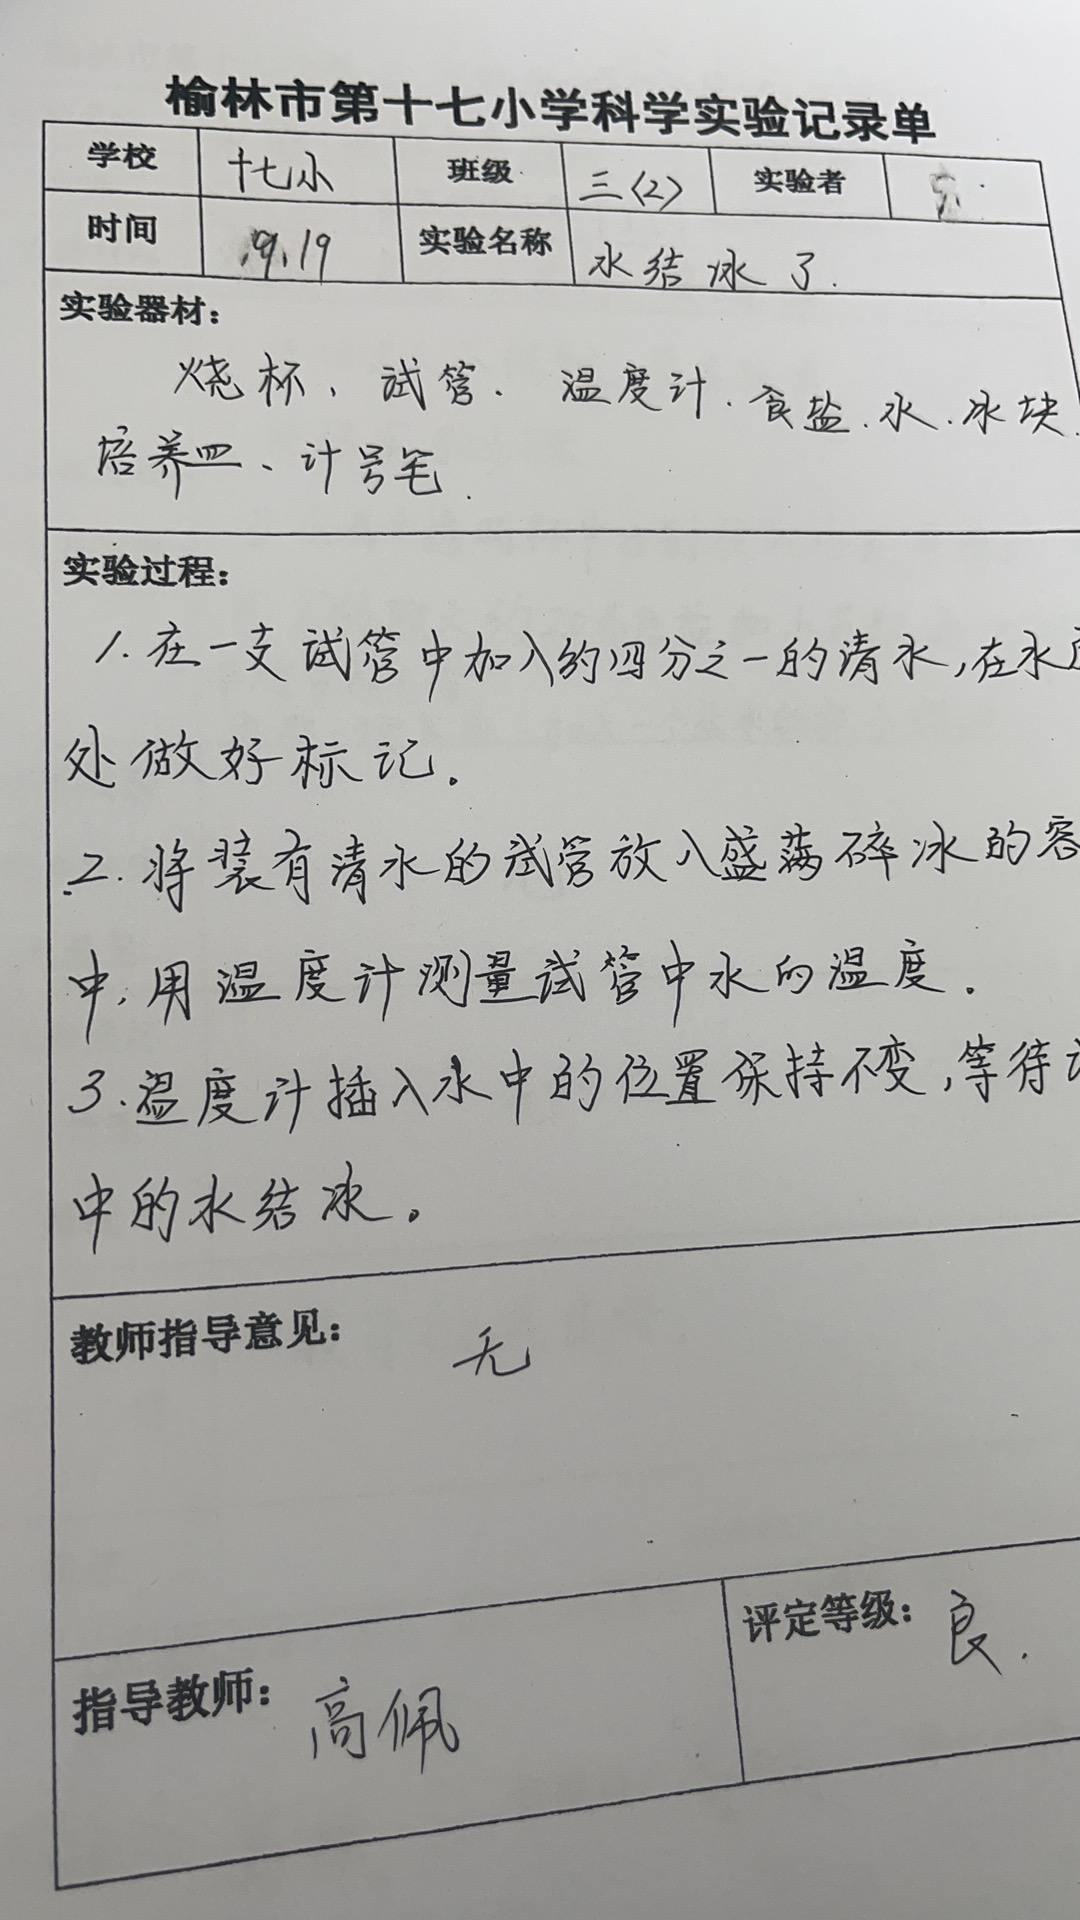 榆林市第十七小学科学实验记录单
学校 十七小 班级 三(2) 实验者
时间 9.19 实验名称 水结冰了.
实验器材:
烧杯、试管. 温度计.食盐.水.冰块.
培养皿、计号笔.
实验过程:
1.在一支试管中加入约四分之一的清水,在水
处做好标记.
2.将装有清水的试管放入盛满碎冰的容
中,用温度计测量试管中水的温度.
3.温度计插入水中的位置保持不变,等待
中的水结冰。
教师指导意见: 无
评定等级: 良.
指导教师: 高佩